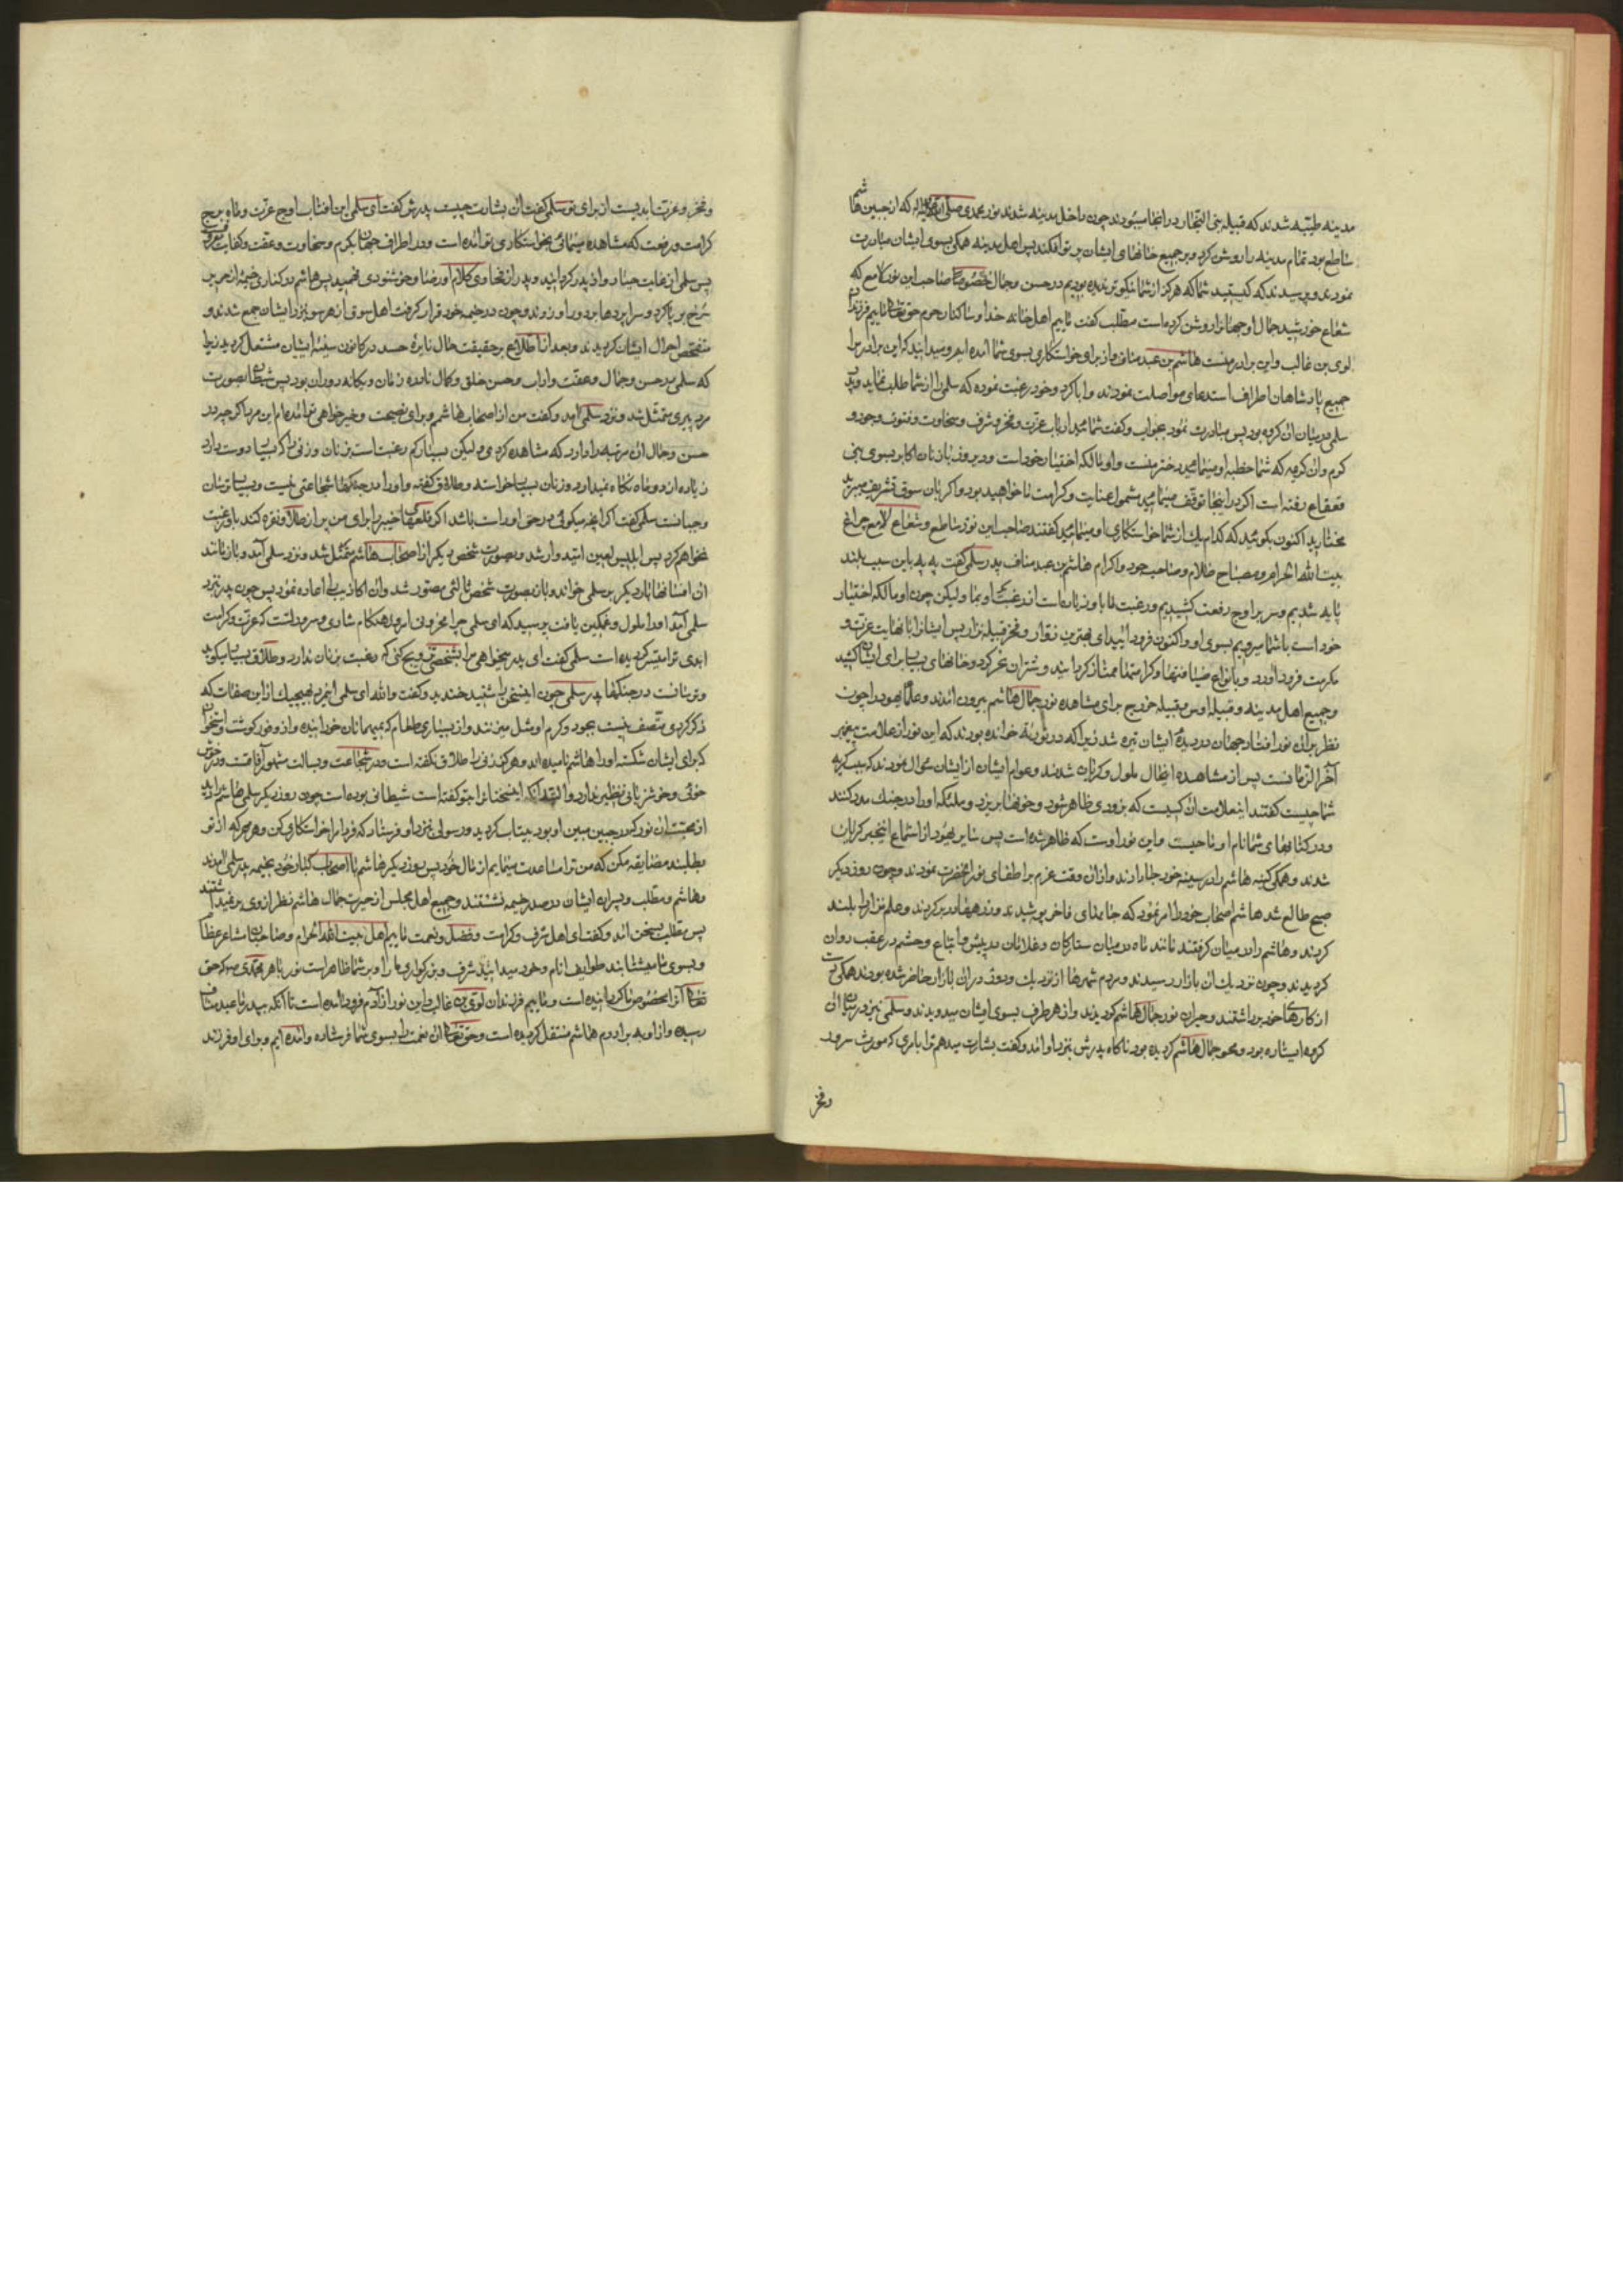 مدینه طیبه شدند که قبیله بنی النجار در انجا میبودند چون داخل مدینه شدند نور محمدی صلی الله علیه واله که از جبین هاشم
ساطع بود تمام مدینه را روشن کرد و بر جمیع خانهای ایشان پرتو افکند پس اهل مدینه همکی بسوی ایشان مبادرت
نمودند و پرسیدند که کیستید شما که هرکز از شما نکوتر ندیده بودیم در حسن و جمال خصوصا صاحب این نور لامع که
شعاع خورشید جمال او جهانرا روشن کرده است مطلب کفت ماییم اهل خانه خدا و ساکنان حرم حق تعالی ماییم فرزندان
لوی بن غالب و این برادر منست هاشم بن عبد مناف و از برای خواستکاری بسوی شما امده ایم و میدانید که این برادر مرا
جمیع پادشاهان اطراف استدعای مواصلت نمودند و ابا کرد و خود رغبت نموده که سلمی را از شما طلب نماید و پدر
سلمی در میان ان کروه بود پس مبادرت نمود بجواب و کفت شمائید ارباب عزت و فخر و شرف و سخاوت و فتوت و جود و
کرم و ان کریمه که شما خطبه او مینمائید دختر منست و او مالکه اختیار خود است و دیروز با زنان اکابر بسوی بنی
قعقاع رفته است اکر در اینجا توقف مینمائید مشمول عنایت و کرامت ما خواهید بود و اکر بان سوق تشریف میبرید
مختارید اکنون بکوئید که کدام یک از شما خواستکاری او مینمائید کفتند صاحب این نور ساطع و شعاع لامع چراغ
بیت الله الحرام و مصباح ظلام و صاحب جود و اکرام هاشم بن عبد مناف پدر سلمی کفت به به باین سبب بلند
پایه شدیم و سر بر اوج رفعت کشیدیم و رغبت ما باو زیاده است از رغبت او بما و لیکن چون او مالکه اختیار
خود است با شما میرویم بسوی او و اکنون فرود ائید ای بهترین زوار و فخر قبیله نزار پس ایشانرا با نهایت عزت و
مکرمت فرود اورد و بانواع ضیافتها و کرامتها ممتاز کردانید و شتران نحر کرد و خانهای بسیار برای ایشان کشید
و جمیع اهل مدینه و قبیله اوس و قبیله خزرج برای مشاهده نور جمال هاشم بیرون امدند و علمای یهود را چون
نظر بران نور افتاد جهان در دیده ایشان تیره شد زیرا که در توریة خوانده بودند که این نور از علامت پیغمبر
آخر الزمانست پس از مشاهده اینحال ملول و کریان شدند و عوام ایشان از ایشان سوال نمودند که سبب کریه
شما چیست کفتند اینعلامت ان کسیست که بزودی ظاهر شود و خونها بریزد و ملئکه او را در جنک مدد کنند
و در کتابهای شما نام او ماحیست و این نور اوست که ظاهر شده است پس سایر یهود از استماع اینخبر کریان
شدند و همکی کینه هاشم را در سینه خود جا دادند و از ان وقت عزم بر اطفای نور انحضرت نمودند و چون روز دیکر
صبح طالع شد هاشم اصحاب خود را امر نمود که جامهای فاخر پوشیدند و زرهها در بر کردند و علم نزار را بلند
کردند و هاشم را در میان کرفتند مانند ماه در میان ستارکان و غلامان در پیش و اتباع و حشم در عقب روان
کردیدند و چون نزدیک ان بازار رسیدند و مردم شهرها از نزدیک و دور در ان بازار حاضر شده بودند همکی دست
از کارهای خود برداشتند و حیران نور جمال هاشم کردیدند و از هر طرف بسوی ایشان میدویدند و سلمی نیز در میان ان
کروه ایستاده بود و محو جمال هاشم کردیده بود ناکاه پدرش بنزد او امد و کفت بشارت میدهم ترا بامری که مورث سرور
وفخر
و فخر و عزت ابدیست از برای تو سلمی کفت ان بشارت چیست پدرش کفت ای سلمی این افتاب اوج عزت و ماه برج
کرامت و رفعت که مشاهده مینمائی بخواستکاری تو امده است و در اطراف جهان بکرم و سخاوت و عفت و کفایت معروف
پس سلمی از غایت حیا رو از پدر کردانید و پدر از فحاوی کلام او رضا و خوشنودی فهمید پس هاشم در کناری خیمه از حریر
سرخ بر پا کرد و سراپردها بر دور او زدند و چون در خیمه خود قرار کرفت اهل سوق از هر سو بنزد ایشان جمع شدند و
متفحص احوال ایشان کردیدند و بعد از اطلاع بر حقیقت حال نایره حسد در کانون سینه ایشان مشتعل کردید زیرا
که سلمی در حسن و جمال و عفت و اداب و حسن خلق و کمال نادره زمان و یکانه دوران بود پس شیطان بصورت
مرد پیری متمثل شد و نزد سلمی امد و کفت من از اصحاب هاشمم و برای نصیحت و خیرخواهی تو امده ام این مرد اکرچه در
حسن و جمال ان مرتبه دارد که مشاهده کردی و لیکن بسیار کم رغبت است بزنان و زنی را که بسیار دوست دارد
زیاده از دو ماه نکاه نمیدارد و زنان بسیار خواسته و طلاق کفته و او را در جنکها شجاعتی نیست و بسیار ترسان
و جبانست سلمی کفت اکر انچه میکوئی در حق او راست باشد اکر قلعهای خیبر را برای من پر از طلا و نقره کند باو رغبت
نخواهم کرد پس ابلیس لعین امیدوار شد و بصورت شخص دیکر از اصحاب هاشم متمثل شد و نزد سلمی آمد و باز مانند
ان افسانها بار دیکر بر سلمی خواند و باز بصورت شخص ثالثی مصور شد و ان اکاذیب را اعاده نمود پس چون پدر بنزد
سلمی آمد او را ملول و غمکین یافت پرسید که ای سلمی چرا محزونی امروز هنکام شادی و سرور تست که عزت و کرامت
ابدی ترا میسر کردیده است سلمی کفت ای پدر میخواهی مرا بشخصی تزویج کنی که رغبت بزنان ندارد و طلاق بسیار میکوید
و ترسانست در جنکها پدر سلمی چون اینسخن را شنید خندید و کفت والله ای سلمی اینمرد بهیچیک از این صفات که
ذکر کردی متصف نیست بجود و کرم او مثل میزنند و از بسیاری طعام که بمیهمانان خورانیده و از وفور کوشت و استخوان
که برای ایشان شکسته او را هاشم نامیده اند و هرکز زنی را طلاق نکفته است و در شجاعت و بسالت مشهور آفاقست و در خوش
خوئی و خوش زبانی نظیر ندارد و البته آنکه اینسخنانرا بتو کفته است شیطانی بوده است چون روز دیکر سلمی هاشم را دید
از محبت ان نور که در جبین مبین او بود بیتاب کردید و رسولی بنزد او فرستاد که فردا مرا خواستکاری کن و هرچه که از تو
بطلبند مضایقه مکن که من ترا مساعدت مینمایم از مال خود پس روز دیکر هاشم با اصحاب کبار خود بخیمه پدر سلمی امدند
و هاشم و مطلب و پسران ایشان در صدر خیمه نشستند و جمیع اهل مجلس از حیرت جمال هاشم نظر از وی بر نمیداشتند
پس مطلب بسخن امد و کفت ای اهل شرف و کرامت و فضل و نعمت ماییم اهل بیت الله الحرام و صاحبان مشاعر عظام
و بسوی ما میشتابند طوایف انام و خود میدانید شرف و بزرکواری ما را و بر شما ظاهر است نور باهر محمدی ص که حق
تعالی آنرا مخصوص ما کردانیده است و ماییم فرزندان لوی بن غالب و این نور از آدم فرود امده است تا آنکه بپدر ما عبد مناف
رسیده و از او به برادرم هاشم منتقل کردیده است و حق تعالی ان نعمت را بسوی شما فرستاده و امده ایم و برای او فرزند